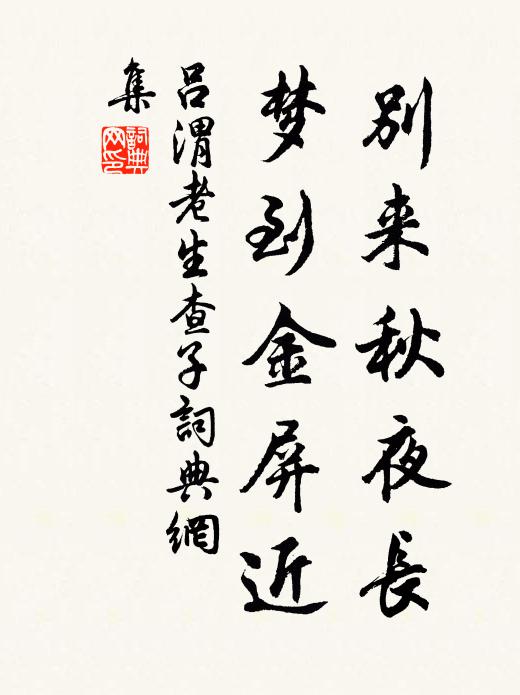 別来秋夜長
梦到金屏近
吕渭老生查子詞典網
集
詞典网印